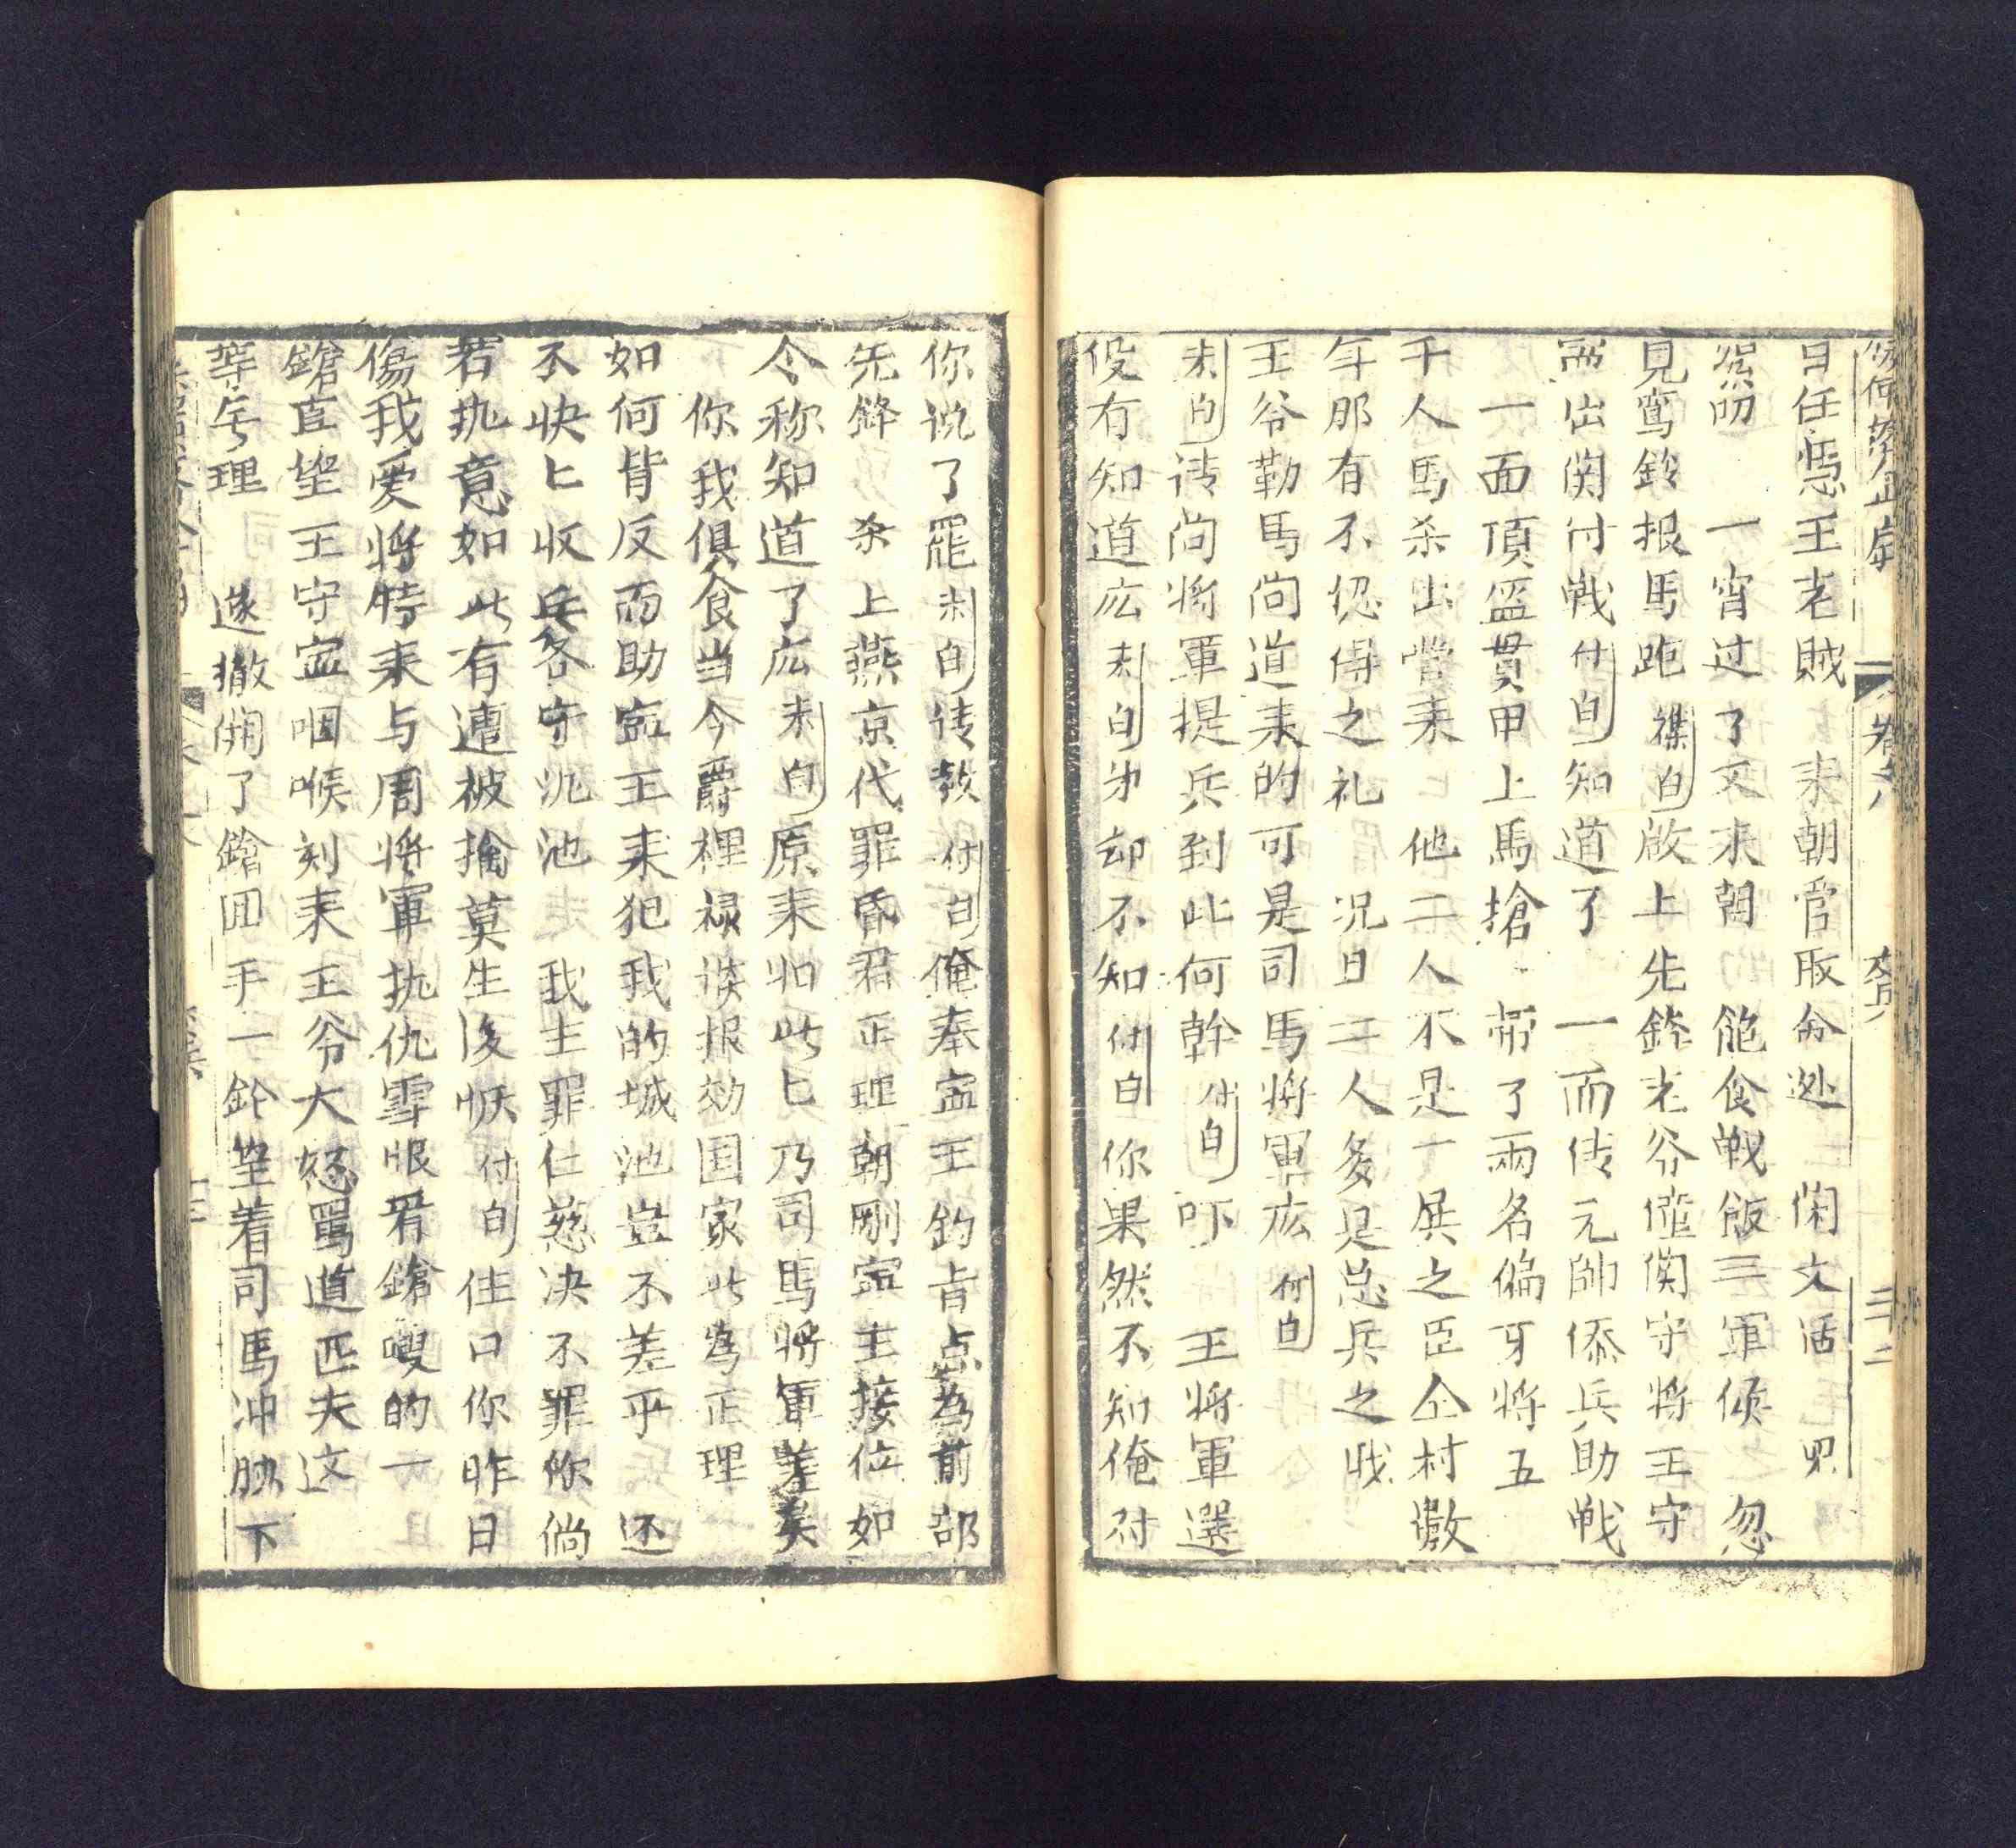 日任憑王老賊　末朝官取命迯　閑文活
一宵过了又末朝　飽食戦飯三軍　忽
見鸞鈴报馬跑　襍白　啟上先鋒老爷　関守将王守
出関付戦　付白　知道了　一面传元帥添兵助戦
一面頂盔貫甲上馬搶　帶了兩名偏牙将五
千人馬杀出營来　匕他二人不是一　之臣仝村
年那有不認得之礼　况日二人多是总兵之戝
王爷勒馬问道来的可是司馬将軍庅　付白
末白　请问将軍提兵到此何幹　付白　吓　王将軍選
役有知道庅　末白　却不知　付白　你果然不知俺对
你说了罷　末白　传教　付白　俺奉寍王钓旨点為前部
先鋒　杀上燕京代罪昏君正理朝剛寍主接位如
今称知道了庅　末白　原来如此匕乃司馬将軍差矣
你我俱食当今爵裡禄谈报効国家此為正理
如何背反而助寍王来犯我的城池豈不差乎　还
不快匕收兵各守汛池　我主罪仁慈决不罪你倘
若执意如此有遭被擒莫生後恢　付白　住口你昨日
傷我爱将特来与周将軍执仇雪恨看鎗嗖的一
鎗直望王守寍咽喉刻来王爷大怒罵道匹夫这
等旡理　遂撒開了鎗回手一鈴望着司馬冲肋下